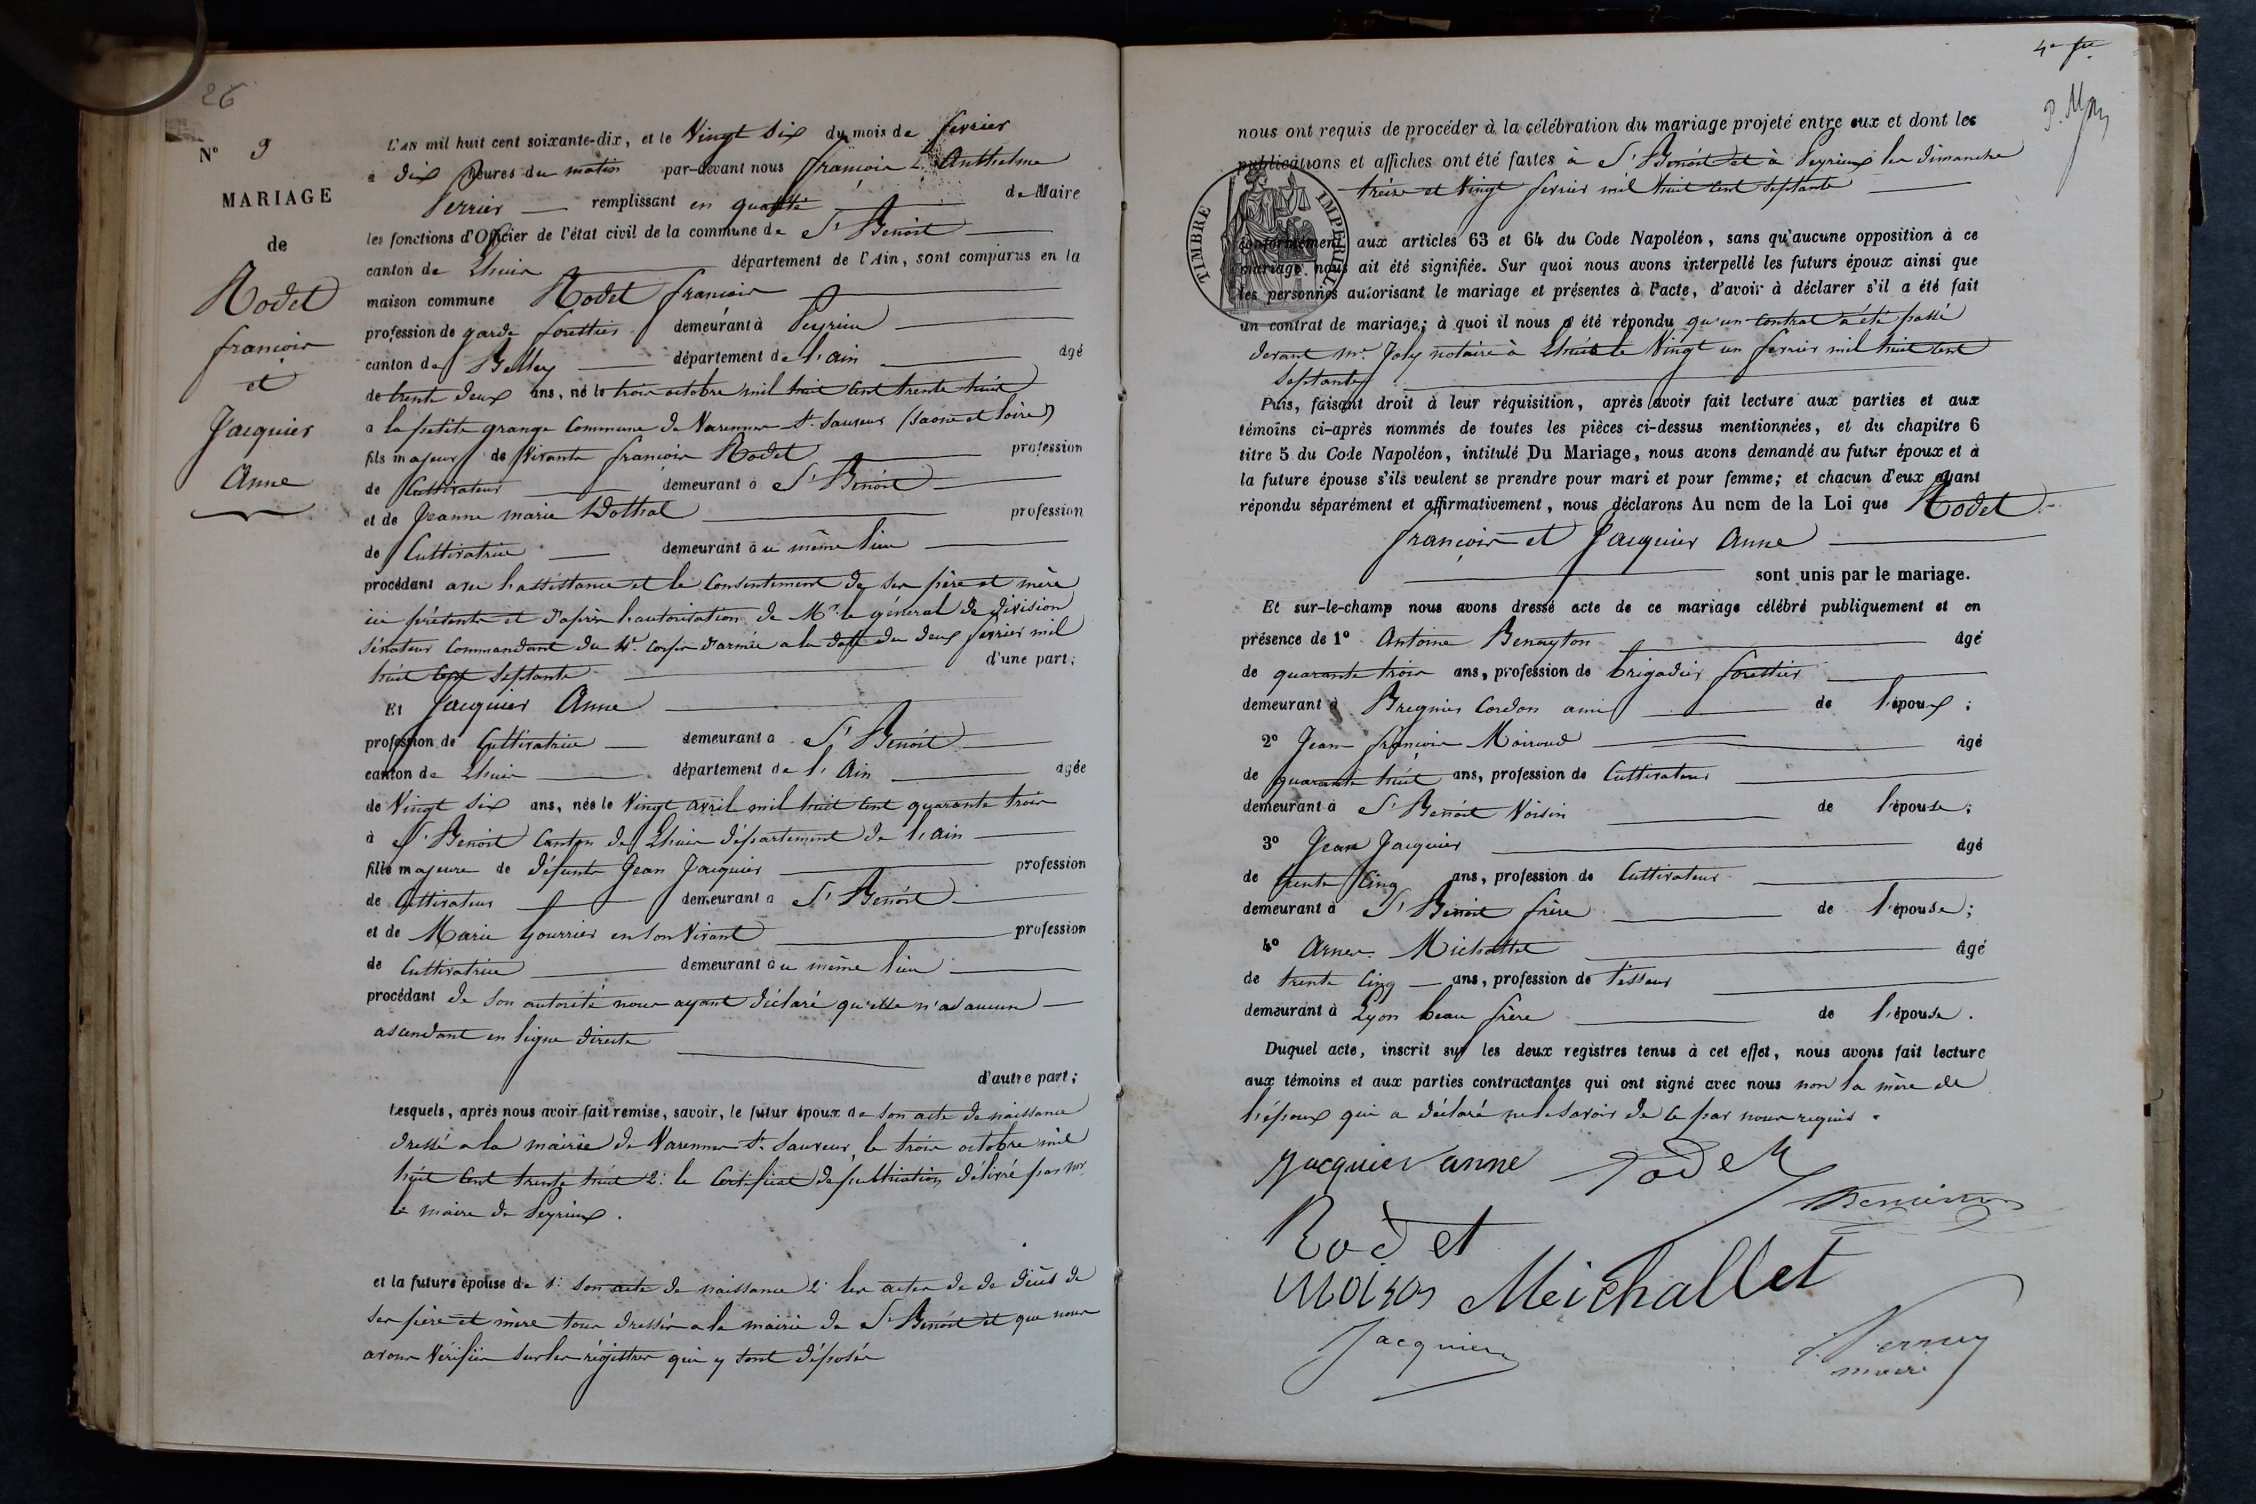 26
N° 9
MARIAGE
de
Rodet
françois
et
Jacquier
Anne
L'AN mil huit cent soixante-dix, et le Vingt six du mois de fevrier
a dix heures du matin par-devant nous françois Anthelme
Perrier remplissant en qualité de Maire
les fonctions d'Officier de l'état civil de la commune de St Benoit
canton de Lhuis département de l'Ain, sont comparus en la
maison commune Rodet françois
profession de garde forestier demeurant à Peyrieu
canton de Belley département de l'ain âgé
de trente deux ans, né le trois octobre mil huit cent trente huit
a la petite grange Commune de Varennes St Sauveur (Saone et Loire)
fils majeur de Vivants françois Rodet profession
de Cultivateur demeurant à St Benoit
et de Jeanne marie profession
de Cultivatrice demeurant à ce même lieu
procédant avec l'assistance et le Consentement de ses père et mère
ici présents et d'après l'autorisation de Mr le général de division
Sénateur Commandant du 4e Corps d'armée a la date du deux fevrier mil
huit cent septante d'une part;
Et Jacquier Anne
profession de Cultivatrice demeurant a St Benoit
canton de Lhuis département de l'Ain agée
de Vingt six ans, née le Vingt avril mil huit cent quarante trois
à St Benoit Canton de Lhuis département de l'ain
fille majeure de défunts Jean Jacquier profession
de Cultivateur demeurant a St Benoit
et de Marie Gourrier en son Vivant profession
de Cultivatrice demeurant à ce même lieu
procédant de son autorité nous ayant déclaré qu'elle n'a aucun
ascendant en ligne directe
d'autre part;
Lesquels, après nous avoir fait remise, savoir, le futur époux de son acte de naissance
dressé a la mairie de Varennes St Sauveur, le trois octobre mil
huit cent trente huit 2° le Certificat de publication délivré par mr
le maire de Peyrieux.
et la future épouse de 1° son acte de naissance 2° les actes de de décès de
ses père et mère tous dressés a la mairie de St Benoit et que nous
avons Vérifiés sur les régistres qui y sont déposés
nous ont requis de procéder à la célébration du mariage projeté entre eux et dont les
publications et affiches ont été faites à St Benoit et à Peyrieux les dimanches
treize et Vingt fevrier mil huit cent septante
TIMBRE IMPERIAL
conformément aux articles 63 et 64 du Code Napoléon, sans qu'aucune opposition à ce
mariage nous ait été signifiée. Sur quoi nous avons interpellé les futurs époux ainsi que
les personnes autorisant le mariage et présentes à l'acte, d'avoir à déclarer s'il a été fait
un contrat de mariage; à quoi il nous a été répondu qu'un contrat a été passé
devant mr Joly notaire à Lhuis le Vingt un fevrier mil huit cent
septante
Puis, faisant droit à leur réquisition, après avoir fait lecture aux parties et aux
témoins ci-après nommés de toutes les pièces ci-dessus mentionnées, et du chapitre 6
titre 5 du Code Napoléon, intitulé Du Mariage, nous avons demandé au futur époux et à
la future épouse s'ils veulent se prendre pour mari et pour femme; et chacun d'eux ayant
répondu séparément et affirmativement, nous déclarons Au nom de la Loi que Rodet
françois et Jacquier Anne
sont unis par le mariage.
Et sur-le-champ nous avons dressé acte de ce mariage célébré publiquement et en
présence de 1° Antoine Benayton âgé
de quarante trois ans, profession de brigadier forestier
demeurant à Bregnier Cordon ami de l'époux;
2° Jean françois Moiroud âgé
de quarante huit ans, profession de Cultivateur
demeurant à St Benoit Voisin de l'épouse;
3° Jean Jacquier âgé
de trente Cinq ans, profession de Cultivateur
demeurant à St Benoit frère de l'épouse;
4° Michallet âgé
de trente Cinq ans, profession de tisseur
demeurant à Lyon beau frère de l'épouse.
Duquel acte, inscrit sur les deux registres tenus à cet effet, nous avons fait lecture
aux témoins et aux parties contractantes qui ont signé avec nous non la mère de
l'époux qui a déclaré ne le savoir de ce par nous requis.
Jacquier anne Rodet
Rodet
Meichallet
Jacquier
maire